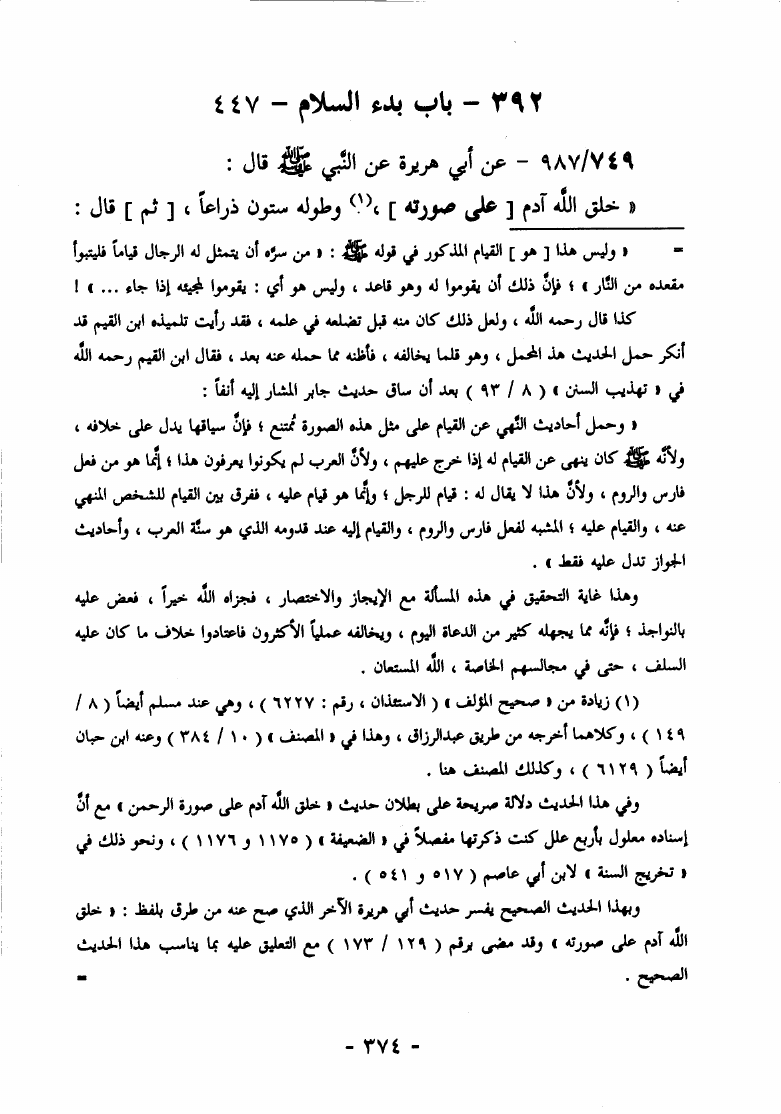 ٣٩٢ - باب بدء السلام - ٤٤٧
٩٨٧/٧٤٩ - عن أبي هريرة عن النَّبي ﷺ قال :
« خلق اللَّه آدم [ على صورته ] ،(١) وطوله ستون ذراعاً ، [ ثم ] قال :
= « وليس هذا [ هو ] القيام المذكور في قوله ﷺ : « من سرَّه أن يتمثل له الرجال قياماً فليتبوأ
مقعده من النَّار » ؛ فإنَّ ذلك أن يقوموا له وهو قاعد ، وليس هو أي : يقوموا لمجيئه إذا جاء ... » !
كذا قال رحمه اللَّه ، ولعل ذلك كان منه قبل تضلعه في علمه ، فقد رأيت تلميذه ابن القيم قد
أنكر حمل الحديث هذ المحمل ، وهو قلما يخالفه ، فأظنه مما حمله عنه بعد ، فقال ابن القيم رحمه اللَّه
في « تهذيب السنن » ( ٨ / ٩٣ ) بعد أن ساق حديث جابر المشار إليه أنفاً :
« وحمل أحاديث النَّهي عن القيام على مثل هذه الصورة مُمتنع ؛ فإنَّ سياقها يدل على خلافه ،
ولأنَّه ﷺ كان ينهى عن القيام له إذا خرج عليهم ، ولأنَّ العرب لم يكونوا يعرفون هذا ؛ إنَّما هو من فعل
فارس والروم ، ولأنَّ هذا لا يقال له : قيام للرجل ؛ وإنَّما هو قيام عليه ، ففرق بين القيام للشخص المنهي
عنه ، والقيام عليه ؛ المشبه لفعل فارس والروم ، والقيام إليه عند قدومه الذي هو سنَّة العرب ، وأحاديث
الجواز تدل عليه فقط » .
وهذا غاية التحقيق في هذه المسألة مع الإيجاز والاختصار ، فجزاه اللَّه خيراً ، فعض عليه
بالنواجذ ؛ فإنَّه مما يجهله كثير من الدعاة اليوم ، ويخالفه عملياً الأكثرون فاعتادوا خلاف ما كان عليه
السلف ، حتى في مجالسهم الخاصة ، اللَّه المستعان .
(١) زيادة من « صحيح المؤلف » ( الاستئذان ، رقم : ٦٢٢٧ ) ، وهي عند مسلم أيضاً ( ٨ /
١٤٩ ) ، وكلاهما أخرجه من طريق عبدالرزاق ، وهذا في « المصنف » ( ١٠ / ٣٨٤ ) وعنه ابن حبان
أيضاً ( ٦١٢٩ ) ، وكذلك المصنف هنا .
وفي هذا الحديث دلالة صريحة على بطلان حديث « خلق اللَّه آدم على صورة الرحمن » مع أنَّ
إسناده معلول بأربع علل كنت ذكرتها مفصلاً في « الضعيفة » ( ١١٧٥ و ١١٧٦ ) ، ونحو ذلك في
« تخريج السنة » لابن أبي عاصم ( ٥١٧ و ٥٤١ ) .
وبهذا الحديث الصحيح يفسر حديث أبي هريرة الآخر الذي صح عنه من طرق بلفظ : « خلق
اللَّه آدم على صورته » وقد مضى برقم ( ١٢٩ / ١٧٣ ) مع التعليق عليه بما يناسب هذا الحديث
الصحيح . =
- ٣٧٤ -